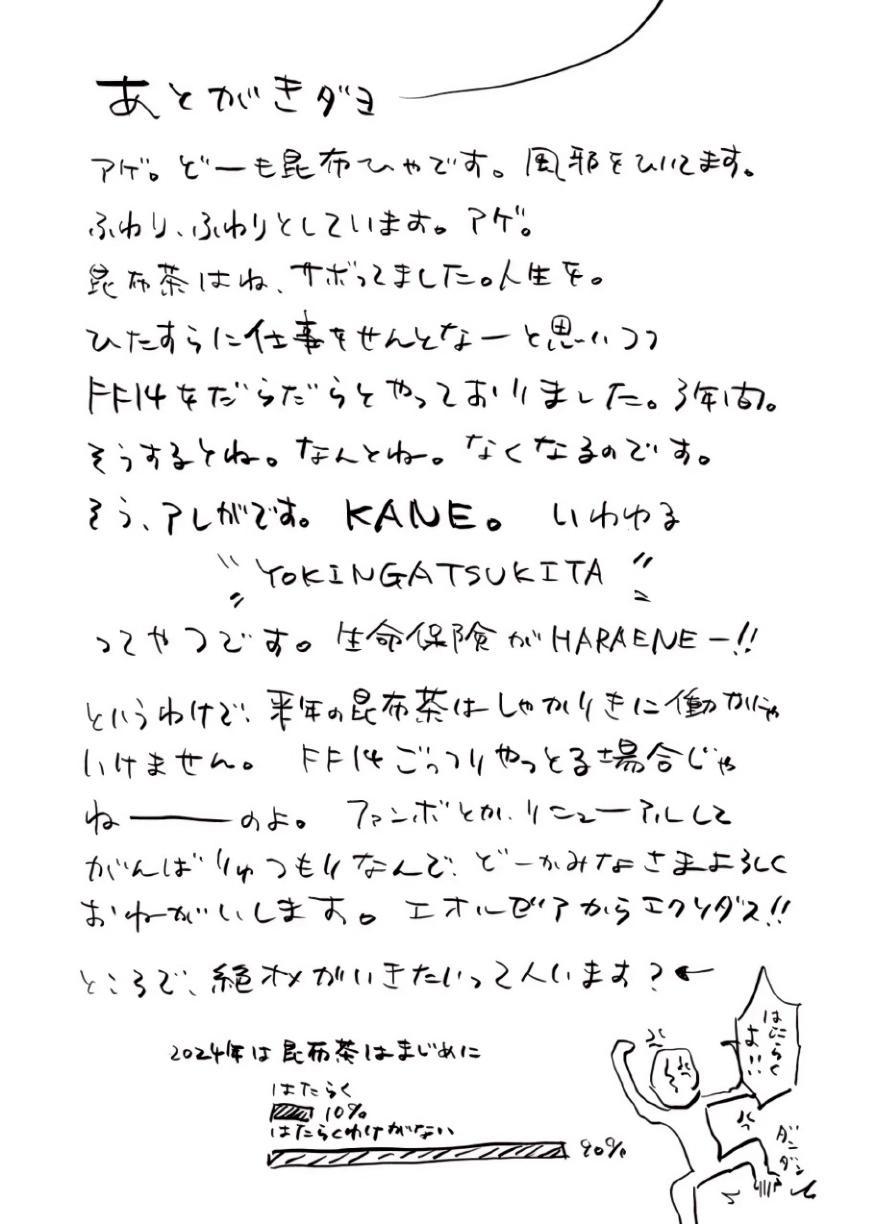 あとがきダヨ
アゲ。どーも昆布ひゃです。風邪をひいてます。
ふわり、ふわりとしています。アゲ。
昆布茶はね、サボってました。人生を。
ひたすらに仕事をせんとなーと思いつつ
FF14をだらだらとやっておりました。3年間。
そうするとね。なんとね。なくなるのです。
そう、アレがです。KANE。いわゆる
YOKINGATSUKITA
ってやつです。生命保険がHARAENEー!!
というわけで、来年の昆布茶はしゃかりきに働かにゃ
いけません。FF14ごっつりやっとる場合じゃ
ねーーーのよ。ファンボとか、リニューアルして
がんばりゅつもりなんで、どーかみなさまよろしく
おねがいします。エオルゼアからエクソダス!!
ところで、絶オメガいきたいって人います?←
はたらくよ!!
2024年は昆布茶はまじめに
はたらく
10%
はたらくわけがない
90%
ダンダン